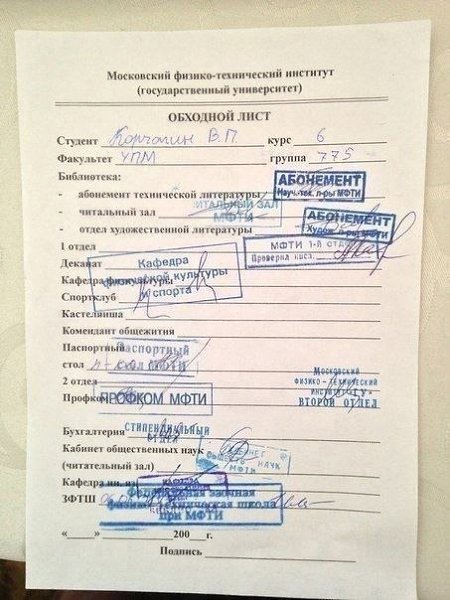 Московский физико-технический институт
(государственный университет)
ОБХОДНОЙ ЛИСТ
Студент Корчагин В.П. курс 6
Факультет УПМ группа 775
Библиотека:
- абонемент технической литературы
АБОНЕМЕНТ
Науч.-тех. л-ры МФТИ
- читальный зал
ИТАЛЬНЫЙ ЗАЛ
МФТИ
- отдел художественной литературы
АБОНЕМЕНТ
Худож. л-ры МФТИ
1 отдел
МФТИ 1-й отдел
Проверил
Деканат
Кафедра
физической культуры
и спорта
Кафедра физкультуры
Спортклуб
Кастелянша
Комендант общежития
Паспортный
стол
Паспортный
стол МФТИ
2 отдел
Московский
физико-технический
институт
ВТОРОЙ ОТДЕЛ
Профком
ПРОФКОМ МФТИ
Бухгалтерия
СТИПЕНДИАЛЬНЫЙ
ОТДЕЛ
Кабинет общественных наук
(читальный зал)
МФТИ
Кафедра ин. яз
ЗФТШ
Федеральная заочная
физико-техническая школа
при МФТИ
«____»____________200___г.
Подпись